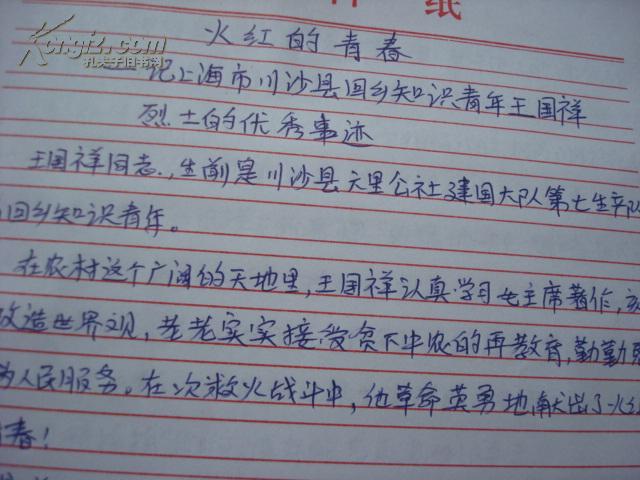 纸
Kongfz.com
孔夫子旧书网
火红的青春
——记上海市川沙县回乡知识青年王国祥
烈士的优秀事迹
王国祥同志，生前是川沙县六里公社建国大队第七生产队
回乡知识青年。
在农村这个广阔的天地里，王国祥认真学习毛主席著作，
改造世界观，老老实实接受贫下中农的再教育，勤勤
为人民服务。在次救火战斗中，他革命英勇地献出了火红
青春！